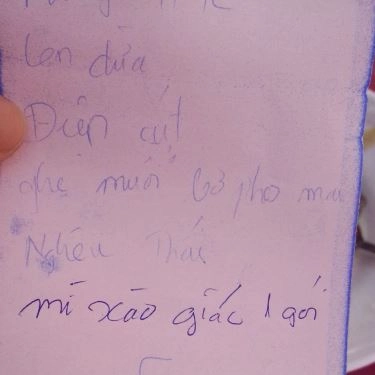 len dừa
Điệp cút
ghẹ muối bơ pho mai
Nhêu Thái
mì xào giấc 1 gói